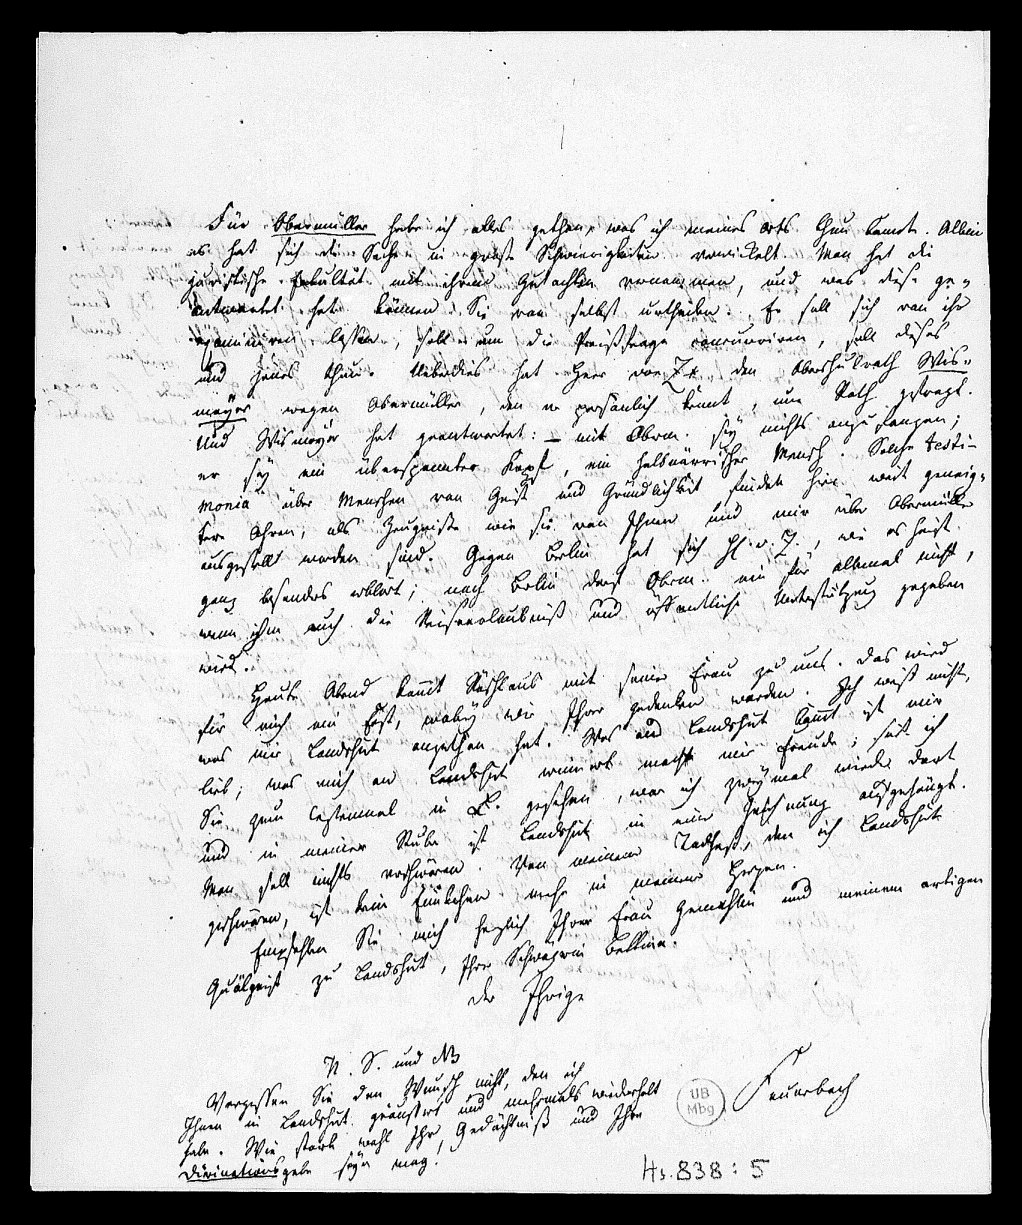 Für Obermüller habe ich alles gethan, was ich meines Orts thun konnte. Allein
es hat sich die Sache in große Schwierigkeiten verwickelt. Man hat die
juristische Fakultät mit ihrem Gutachten vernommen, und was diese ge-
antwortet hat können Sie von selbst urtheilen. Er soll sich von ihr
examiniren lassen, soll um die Preißfrage concurriren, soll dieses
und jenes thun. Ueberdies hat Herr von Z. den Oberschulrath Wis-
mayr wegen Obermüller, den er persönlich kennt, um Rath gefragt.
Und Wismayr hat geantwortet: – mit Oberm. sey nichts anzufangen;
er sey ein überspannter Kopf, ein halbnärrischer Mensch. Solche testi-
monia über Menschen von Geist und Gründlichkeit finden hier weit geneig-
tere Ohren, als Zeugniße wie sie von Ihnen und mir über Obermüller
ausgestellt worden sind. Gegen Berlin hat sich H. v. Z., wie es heist
ganz besonders erklärt; nach Berlin darf Oberm. ein für allemal nicht,
wenn ihm auch die Reiseerlaubniß und öffentliche Unterstützung gegeben
wird.
Heute Abend kommt Röschlaub mit seiner Frau zu uns. Das wird
für mich ein Fest, wobey wir Ihrer gedenken werden. Ich weiß nicht,
was mir Landshut angethan hat. Was von Landshut kommt ist mir
lieb; was mich an Landshut erinnert macht mir Freude; seit ich
Sie zum letztenmal in L. gesehen, war ich zweymal wieder dort
und in meiner Stube ist Landshut in einer Zeichnung aufgehängt.
Man soll nichts verschwören. Von meinem Todhaß, den ich Landshut
geschworen, ist kein Fünkchen mehr in meinem Herzen.
Empfehlen Sie mich herzlich Ihrer Frau Gemahlin und meinem artigen
Quälgeist zu Landshut, Ihrer Schwägerin Bettina.
Der Ihrige
Feuerbach
N. S. und NB
Vergessen Sie den Wunsch nicht, den ich
Ihnen in Landshut geäussert und mehrmals wiederholt
habe. Wie stark wohl Ihr Gedächtniß und Ihre
Divinationsgabe seyn mag!
UB
Mbg
Hs. 838 : 5